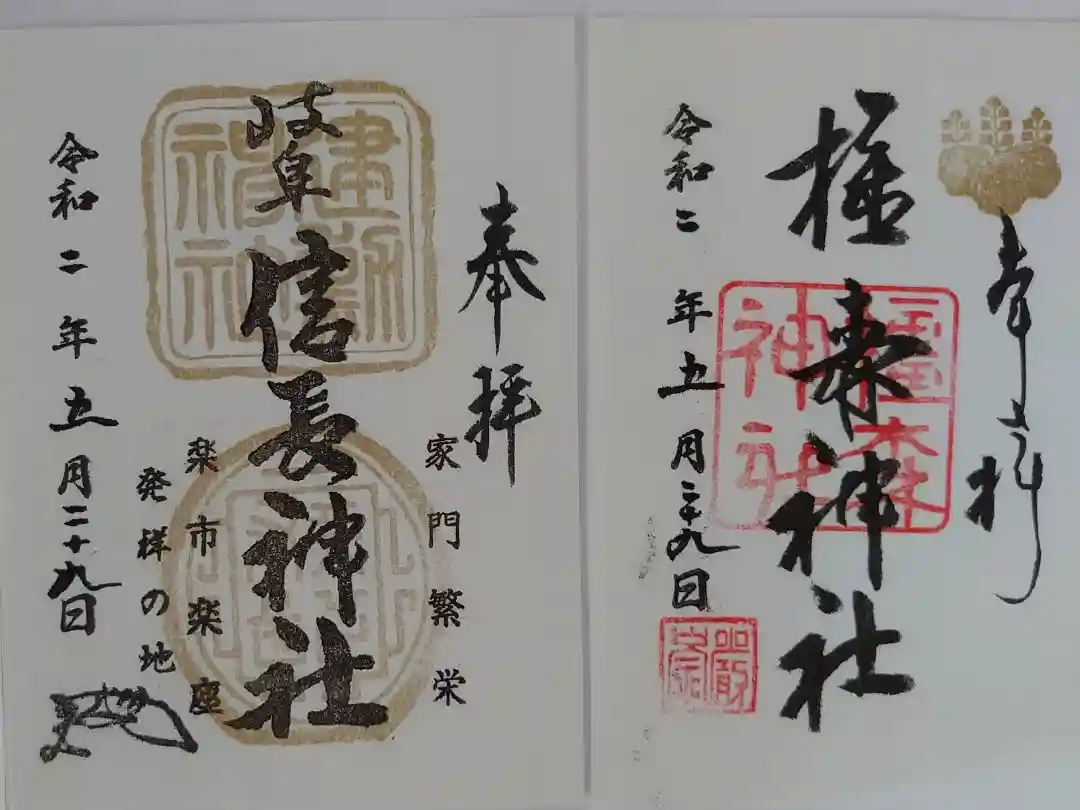 奉拝
橿森神社
橿森神社
令和二年五月二十九日
奉拝
家門繁栄
岐阜信長神社
建勲神社
楽市楽座
発祥の地
令和二年五月二十九日